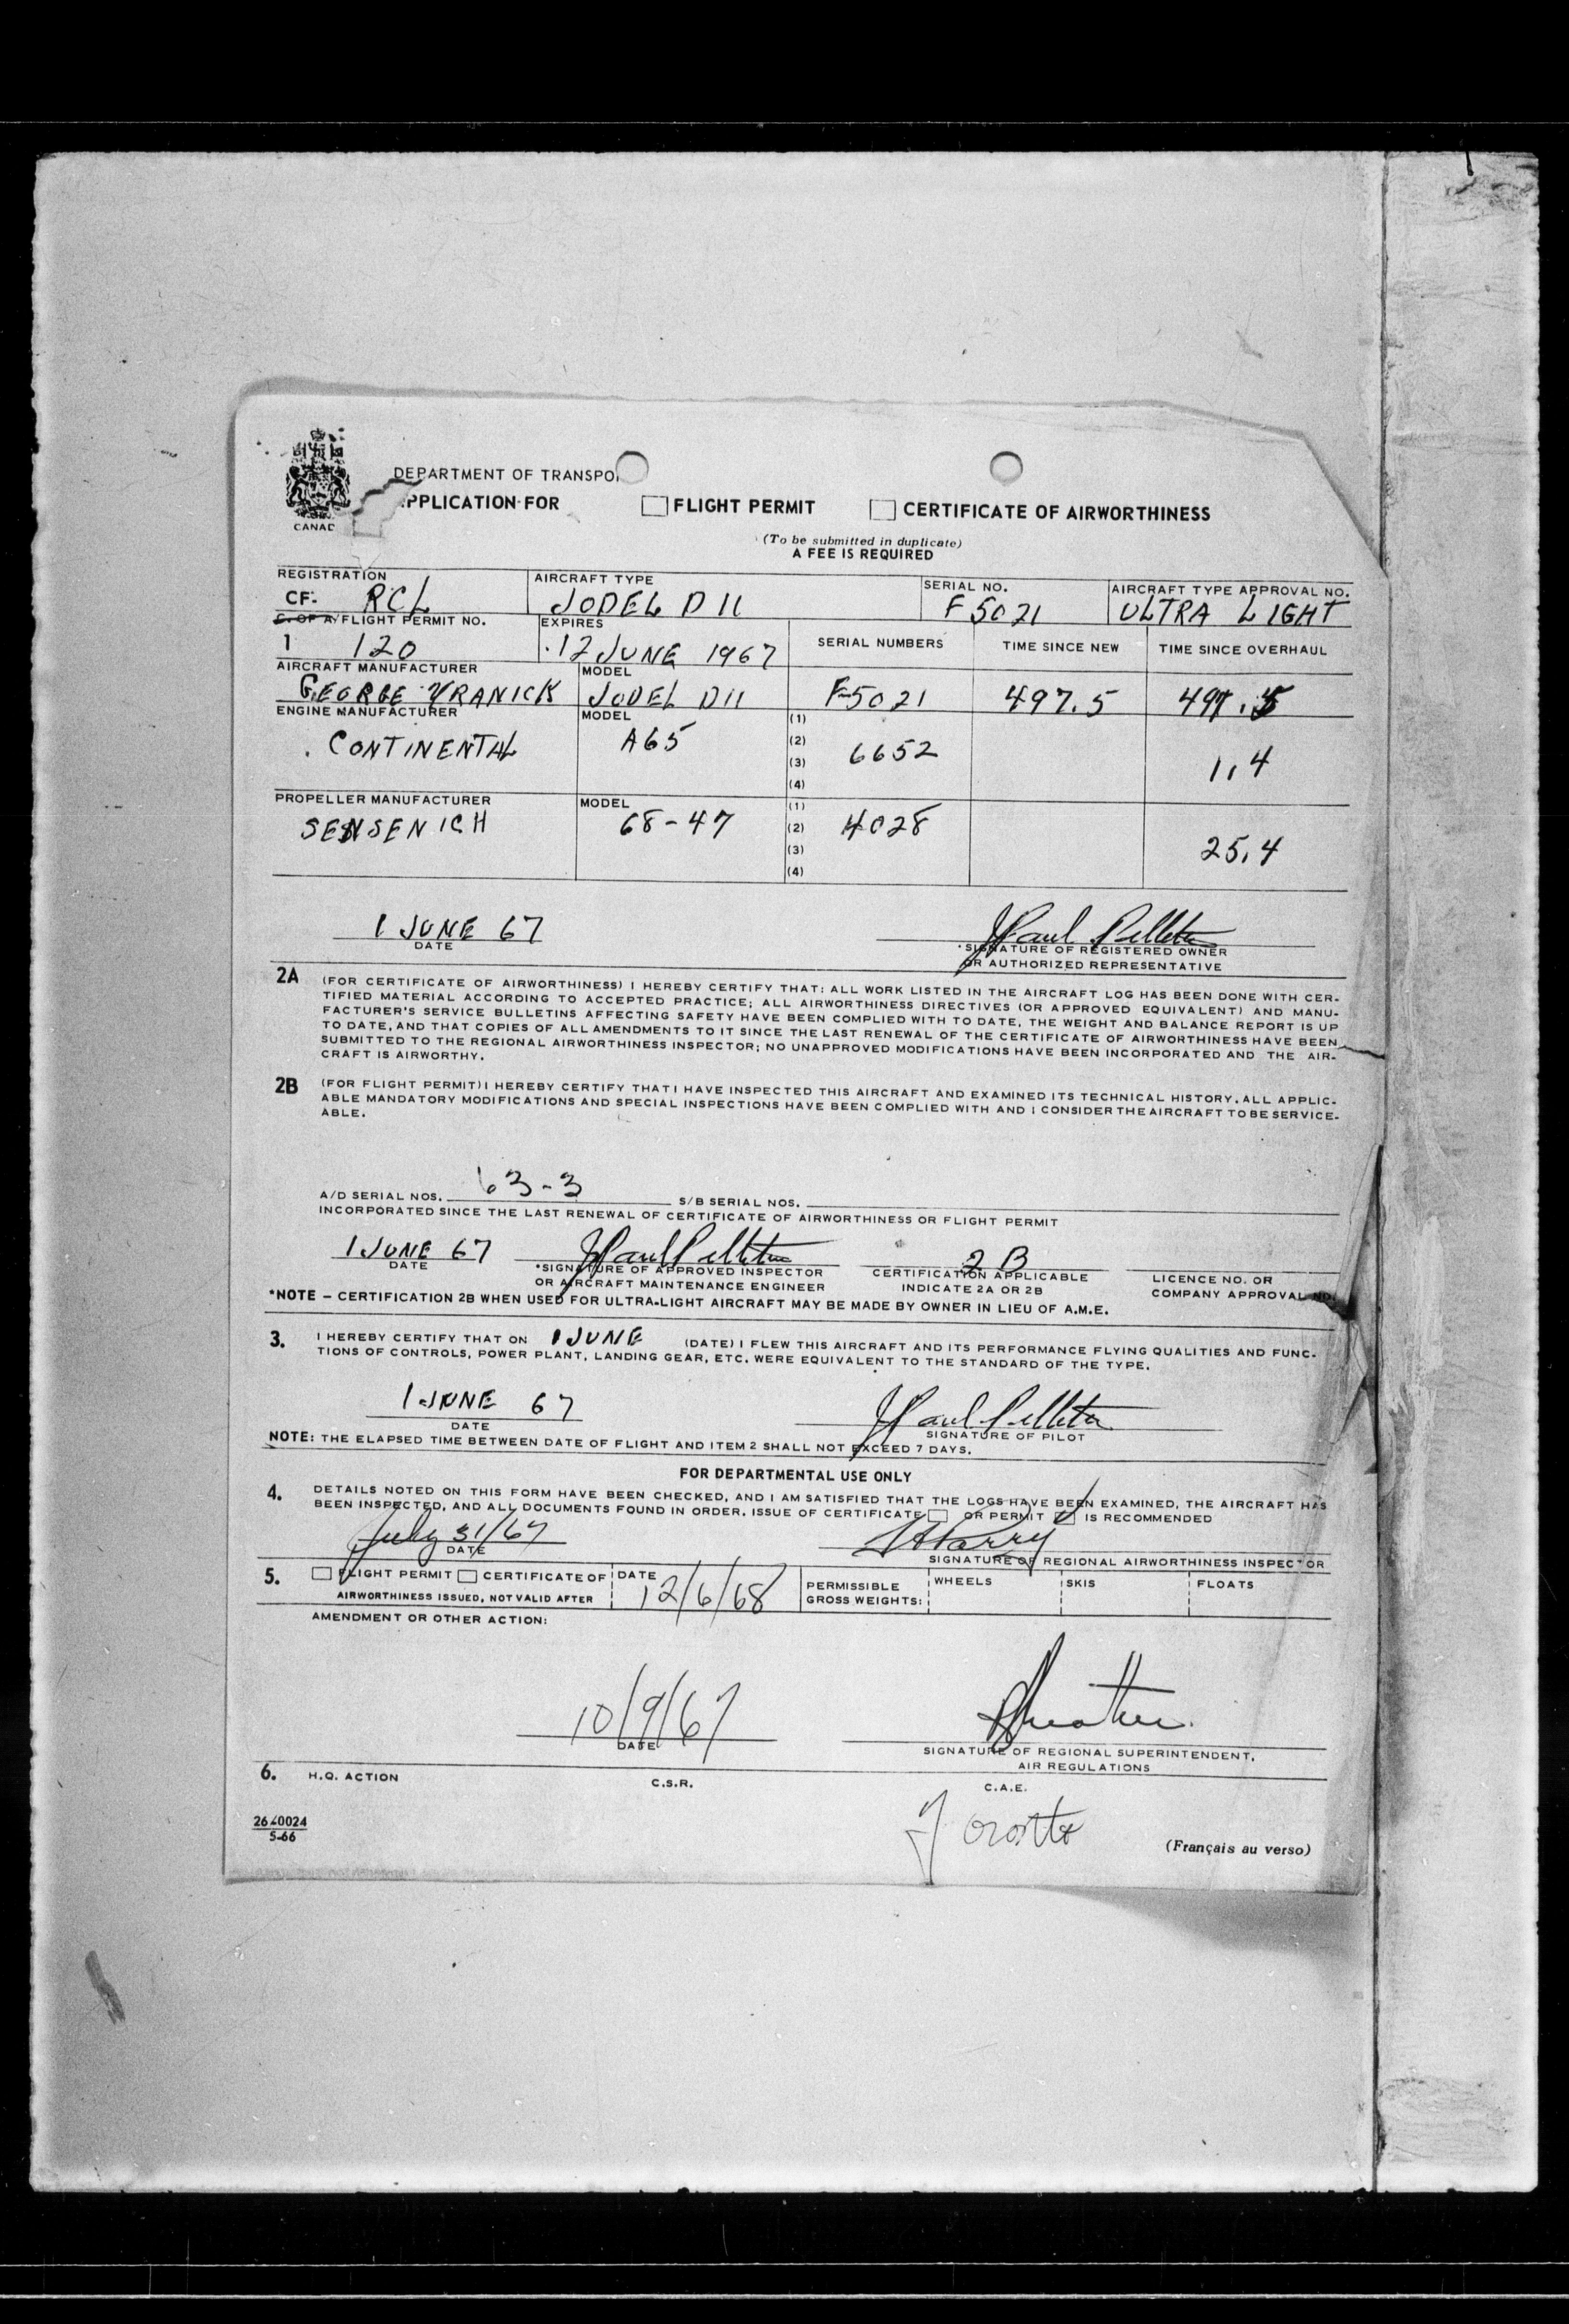 DEPARTMENT OF TRANSPO
CANAD
PPLICATION FOR FLIGHT PERMIT CERTIFICATE OF AIRWORTHINESS
(To be submitted in duplicate)
A FEE IS REQUIRED
REGISTRATION AIRCRAFT TYPE SERIAL NO. AIRCRAFT TYPE APPROVAL NO.
CF- RCL JODEL D 11 F 5021 ULTRA LIGHT
C. OF A/FLIGHT PERMIT NO. EXPIRES SERIAL NUMBERS TIME SINCE NEW TIME SINCE OVERHAUL
1 120 12 JUNE 1967
AIRCRAFT MANUFACTURER MODEL
GEORGE VRANICK JODEL D11 F-5021 497.5 497.5
ENGINE MANUFACTURER MODEL (1)
CONTINENTAL A65 (2) 6652 1.4
(3)
(4)
PROPELLER MANUFACTURER MODEL (1)
SENSENICH 68-47 (2) 4028 25.4
(3)
(4)
1 JUNE 67 J Paul Pelleter
DATE *SIGNATURE OF REGISTERED OWNER
OR AUTHORIZED REPRESENTATIVE
2A (FOR CERTIFICATE OF AIRWORTHINESS) I HEREBY CERTIFY THAT: ALL WORK LISTED IN THE AIRCRAFT LOG HAS BEEN DONE WITH CER-
TIFIED MATERIAL ACCORDING TO ACCEPTED PRACTICE; ALL AIRWORTHINESS DIRECTIVES (OR APPROVED EQUIVALENT) AND MANU-
FACTURER'S SERVICE BULLETINS AFFECTING SAFETY HAVE BEEN COMPLIED WITH TO DATE, THE WEIGHT AND BALANCE REPORT IS UP
TO DATE, AND THAT COPIES OF ALL AMENDMENTS TO IT SINCE THE LAST RENEWAL OF THE CERTIFICATE OF AIRWORTHINESS HAVE BEEN
SUBMITTED TO THE REGIONAL AIRWORTHINESS INSPECTOR; NO UNAPPROVED MODIFICATIONS HAVE BEEN INCORPORATED AND THE AIR-
CRAFT IS AIRWORTHY.
2B (FOR FLIGHT PERMIT) I HEREBY CERTIFY THAT I HAVE INSPECTED THIS AIRCRAFT AND EXAMINED ITS TECHNICAL HISTORY. ALL APPLIC-
ABLE MANDATORY MODIFICATIONS AND SPECIAL INSPECTIONS HAVE BEEN COMPLIED WITH AND I CONSIDER THE AIRCRAFT TO BE SERVICE-
ABLE.
A/D SERIAL NOS. 63-3 S/B SERIAL NOS.
INCORPORATED SINCE THE LAST RENEWAL OF CERTIFICATE OF AIRWORTHINESS OR FLIGHT PERMIT
1 JUNE 67 J Paul Pelleter 2 B
DATE *SIGNATURE OF APPROVED INSPECTOR CERTIFICATION APPLICABLE LICENCE NO. OR
OR AIRCRAFT MAINTENANCE ENGINEER INDICATE 2A OR 2B COMPANY APPROVAL NO.
*NOTE – CERTIFICATION 2B WHEN USED FOR ULTRA-LIGHT AIRCRAFT MAY BE MADE BY OWNER IN LIEU OF A.M.E.
3. I HEREBY CERTIFY THAT ON 1 JUNE (DATE) I FLEW THIS AIRCRAFT AND ITS PERFORMANCE FLYING QUALITIES AND FUNC-
TIONS OF CONTROLS, POWER PLANT, LANDING GEAR, ETC. WERE EQUIVALENT TO THE STANDARD OF THE TYPE.
1 JUNE 67 J Paul Pelleter
DATE SIGNATURE OF PILOT
NOTE: THE ELAPSED TIME BETWEEN DATE OF FLIGHT AND ITEM 2 SHALL NOT EXCEED 7 DAYS.
FOR DEPARTMENTAL USE ONLY
4. DETAILS NOTED ON THIS FORM HAVE BEEN CHECKED, AND I AM SATISFIED THAT THE LOGS HAVE BEEN EXAMINED, THE AIRCRAFT HAS
BEEN INSPECTED, AND ALL DOCUMENTS FOUND IN ORDER. ISSUE OF CERTIFICATE OR PERMIT IS RECOMMENDED
July 31/67
DATE SIGNATURE OF REGIONAL AIRWORTHINESS INSPECTOR
5. FLIGHT PERMIT CERTIFICATE OF DATE PERMISSIBLE WHEELS SKIS FLOATS
AIRWORTHINESS ISSUED, NOT VALID AFTER 12/6/68 GROSS WEIGHTS:
AMENDMENT OR OTHER ACTION:
10/9/67
DATE SIGNATURE OF REGIONAL SUPERINTENDENT,
AIR REGULATIONS
6. H.Q. ACTION C.S.R. C.A.E.
Toronto
26-0024
5-66
(Français au verso)